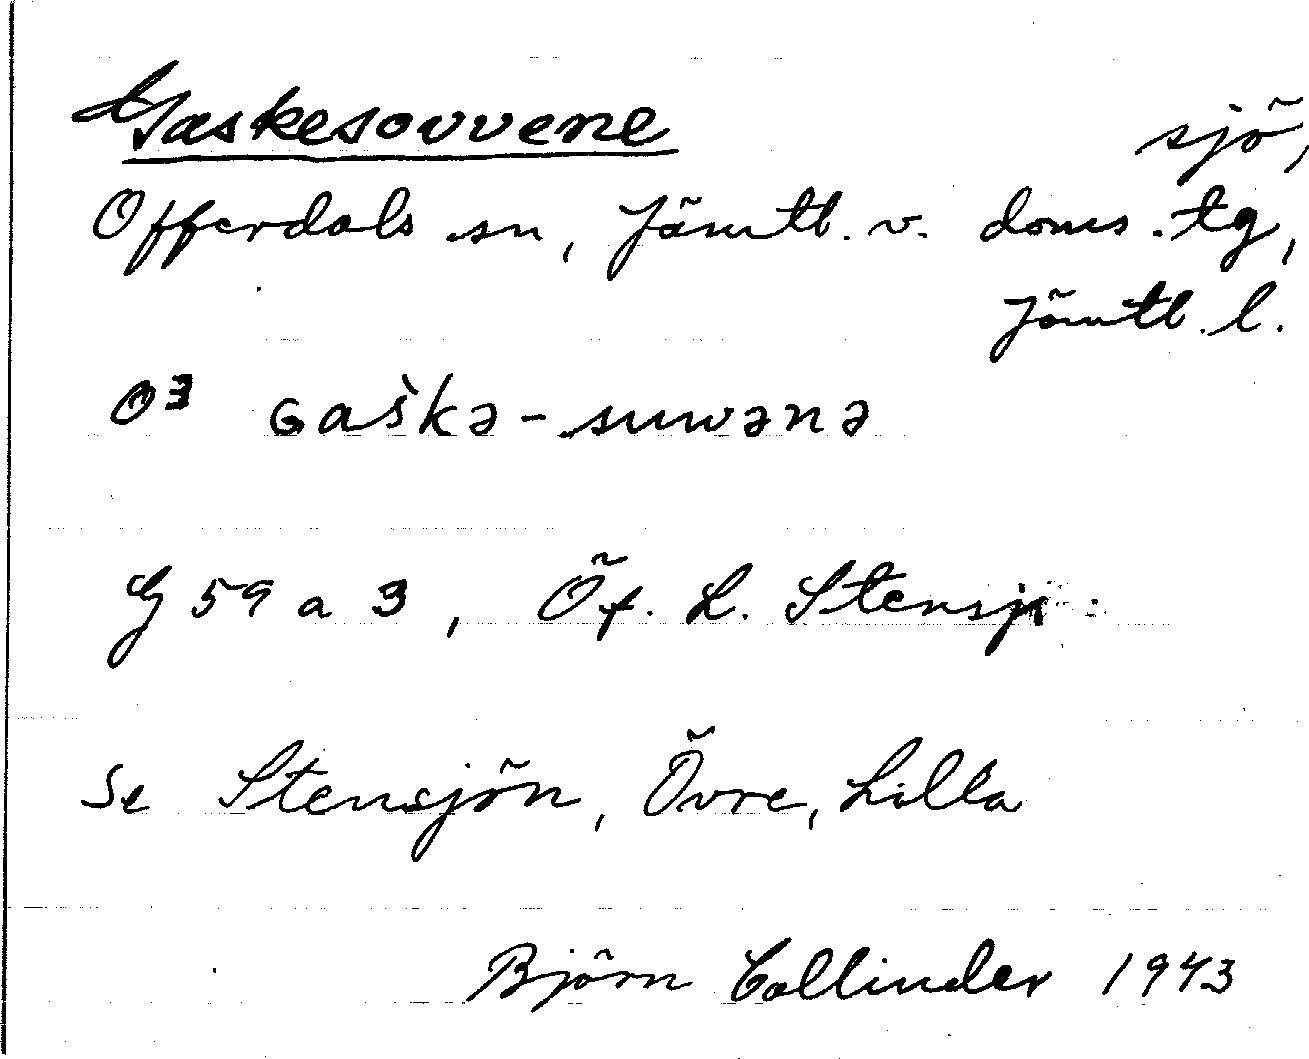 Gaskesovvene sjö,
Offerdals sn, Jämtl. v. doms. tg,
Jämtl. l.
O³ Gaškə-suwənə
G 59 a 3, Öf. L. Stensj
Se Stensjön, Övre, Lilla
Björn Collinder 1943